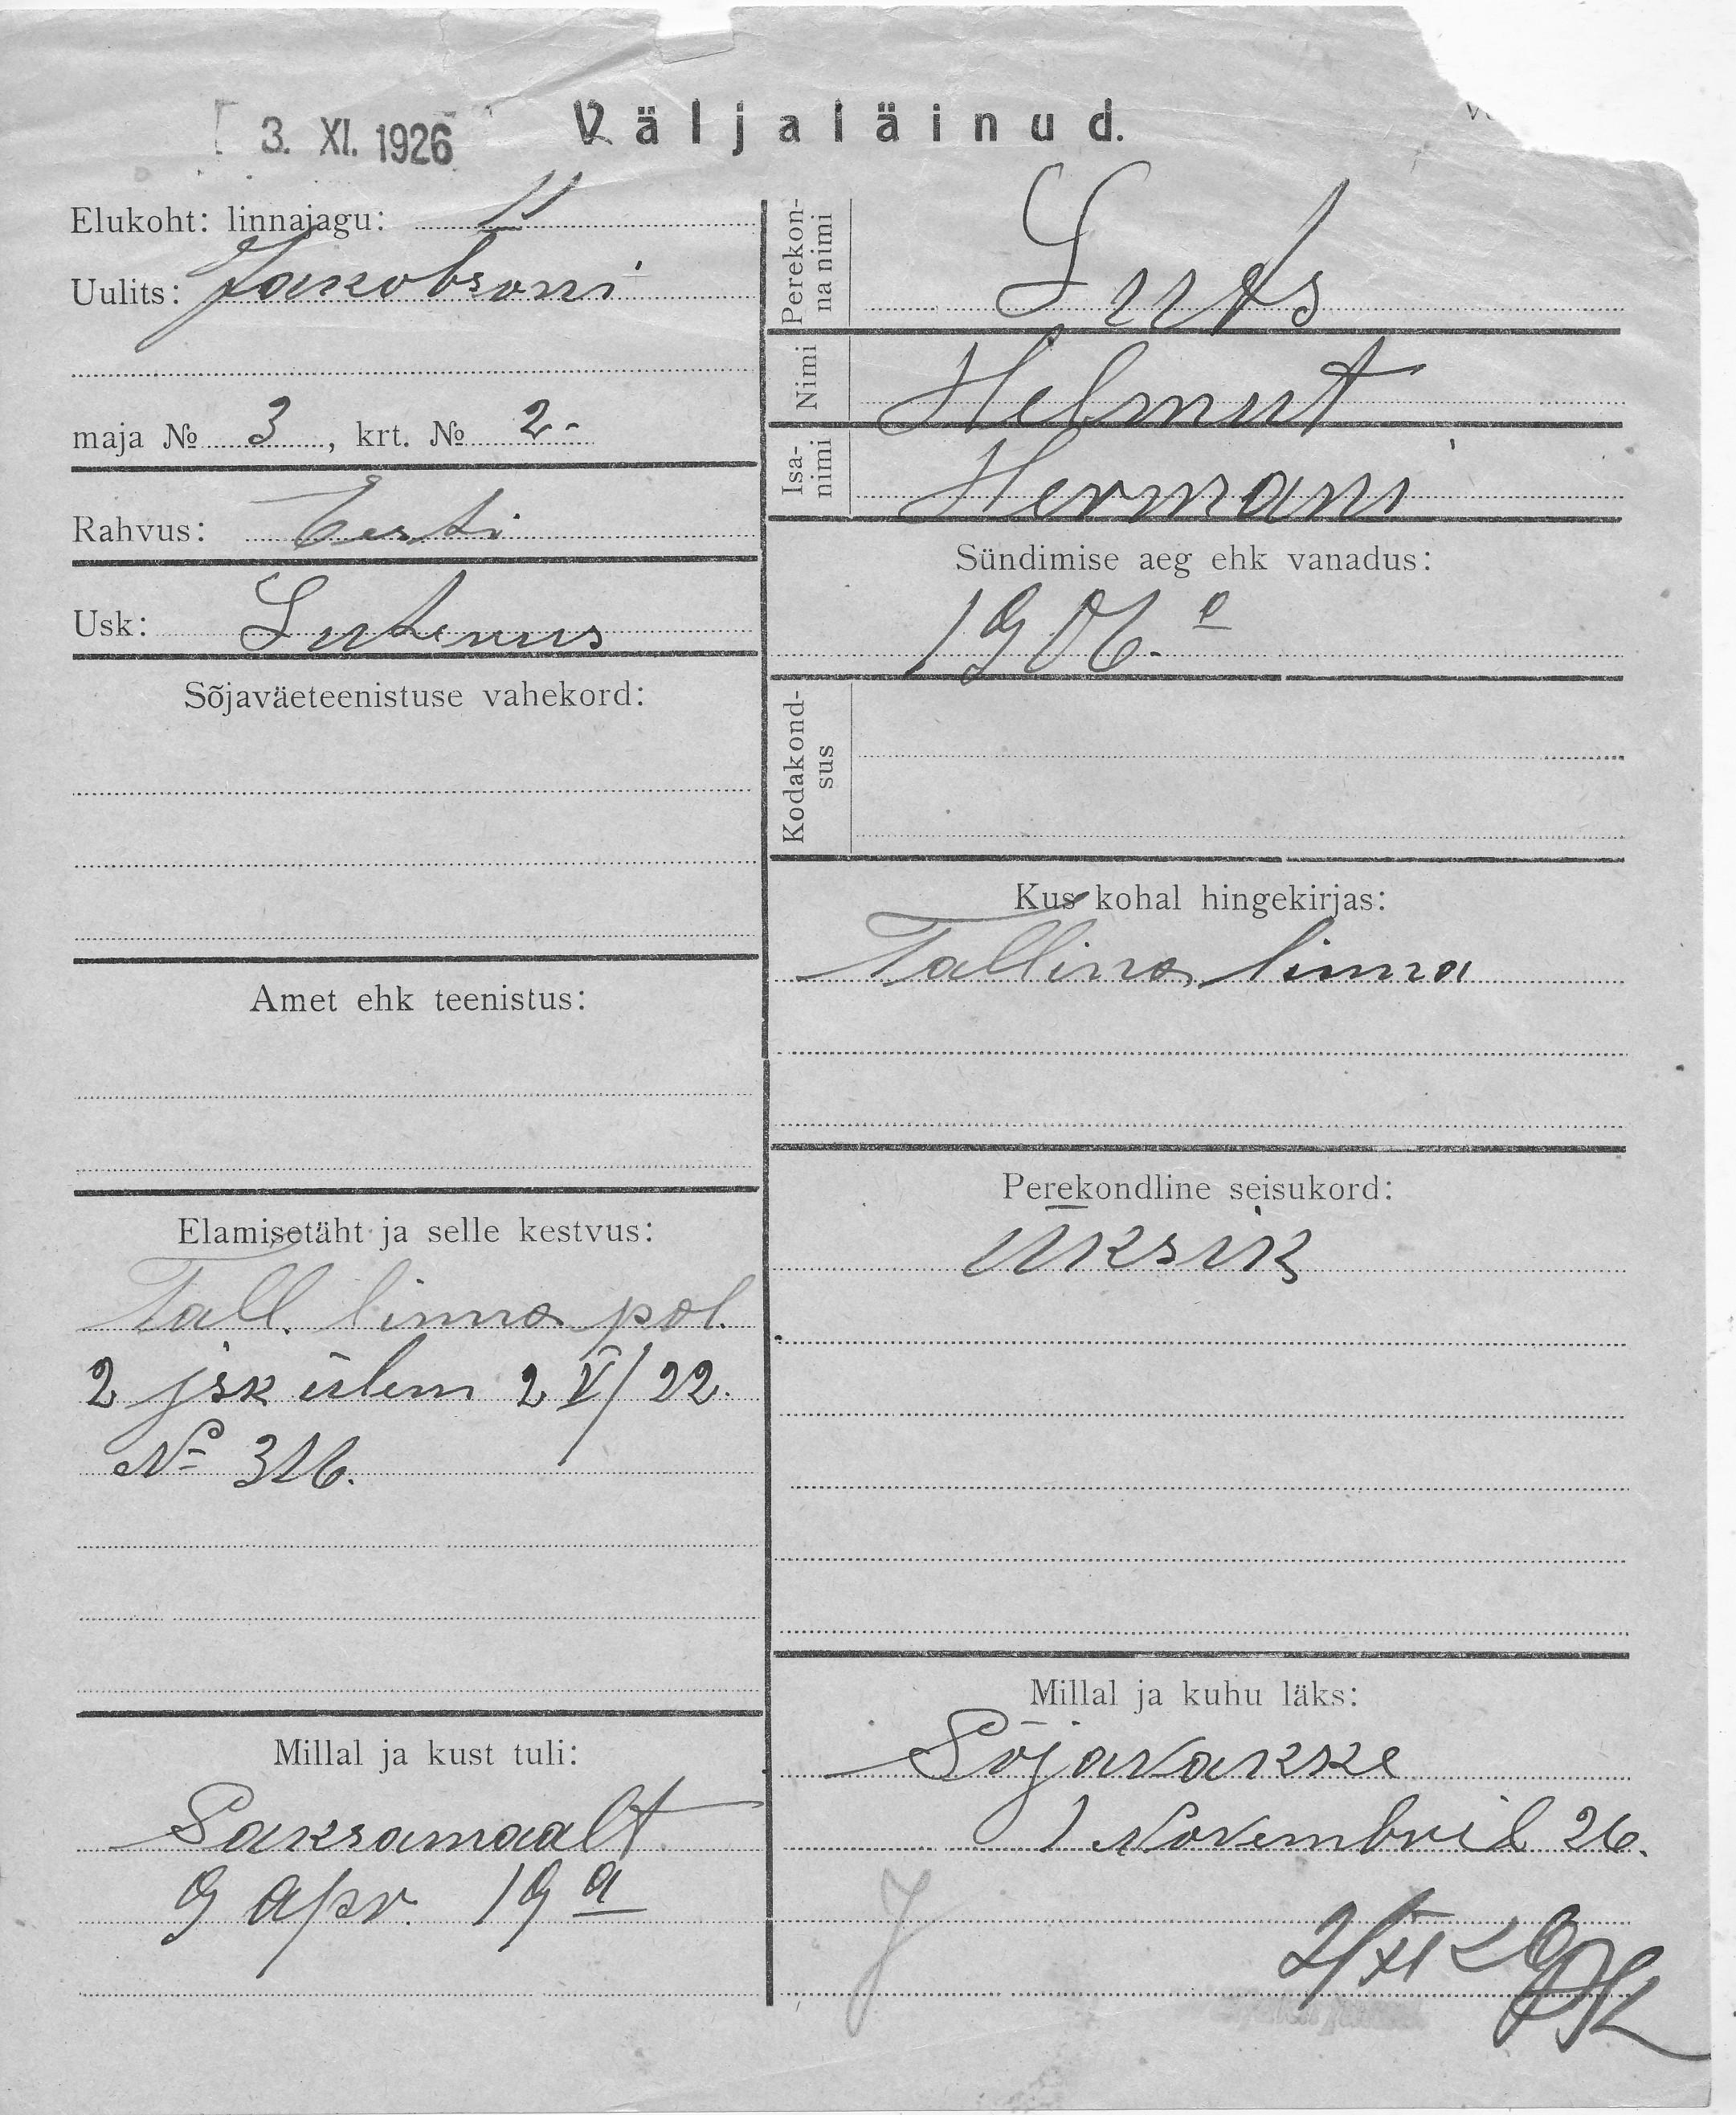 3. XI. 1926
Väljaläinud.
Elukoht: linnajagu: II
Uulits: Jakobsoni
maja № 3, krt. № 2-
Rahvus: Eesti
Usk: Luterus
Sõjaväeteenistuse vahekord:
Amet ehk teenistus:
Elamisetäht ja selle kestvus:
Tall. linna pol.
2 jsk ülem 2 V/22.
№ 316.
Millal ja kust tuli:
Saksamaalt
9 apr. 19 a
Perekonna nimi
Luts
Nimi
Helmut
Isanimi
Hermani
Sündimise aeg ehk vanadus:
1906. a
Kodakondsus
Kus kohal hingekirjas:
Tallina linna
Perekondline seisukord:
üksik
Millal ja kuhu läks:
Sõjavakke
1 Novembril 26.
2/XI 26